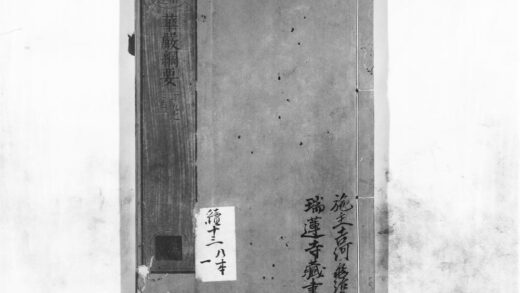 施主吉河
瑞蓮寺藏書
續十三八本
一
華嚴綱要